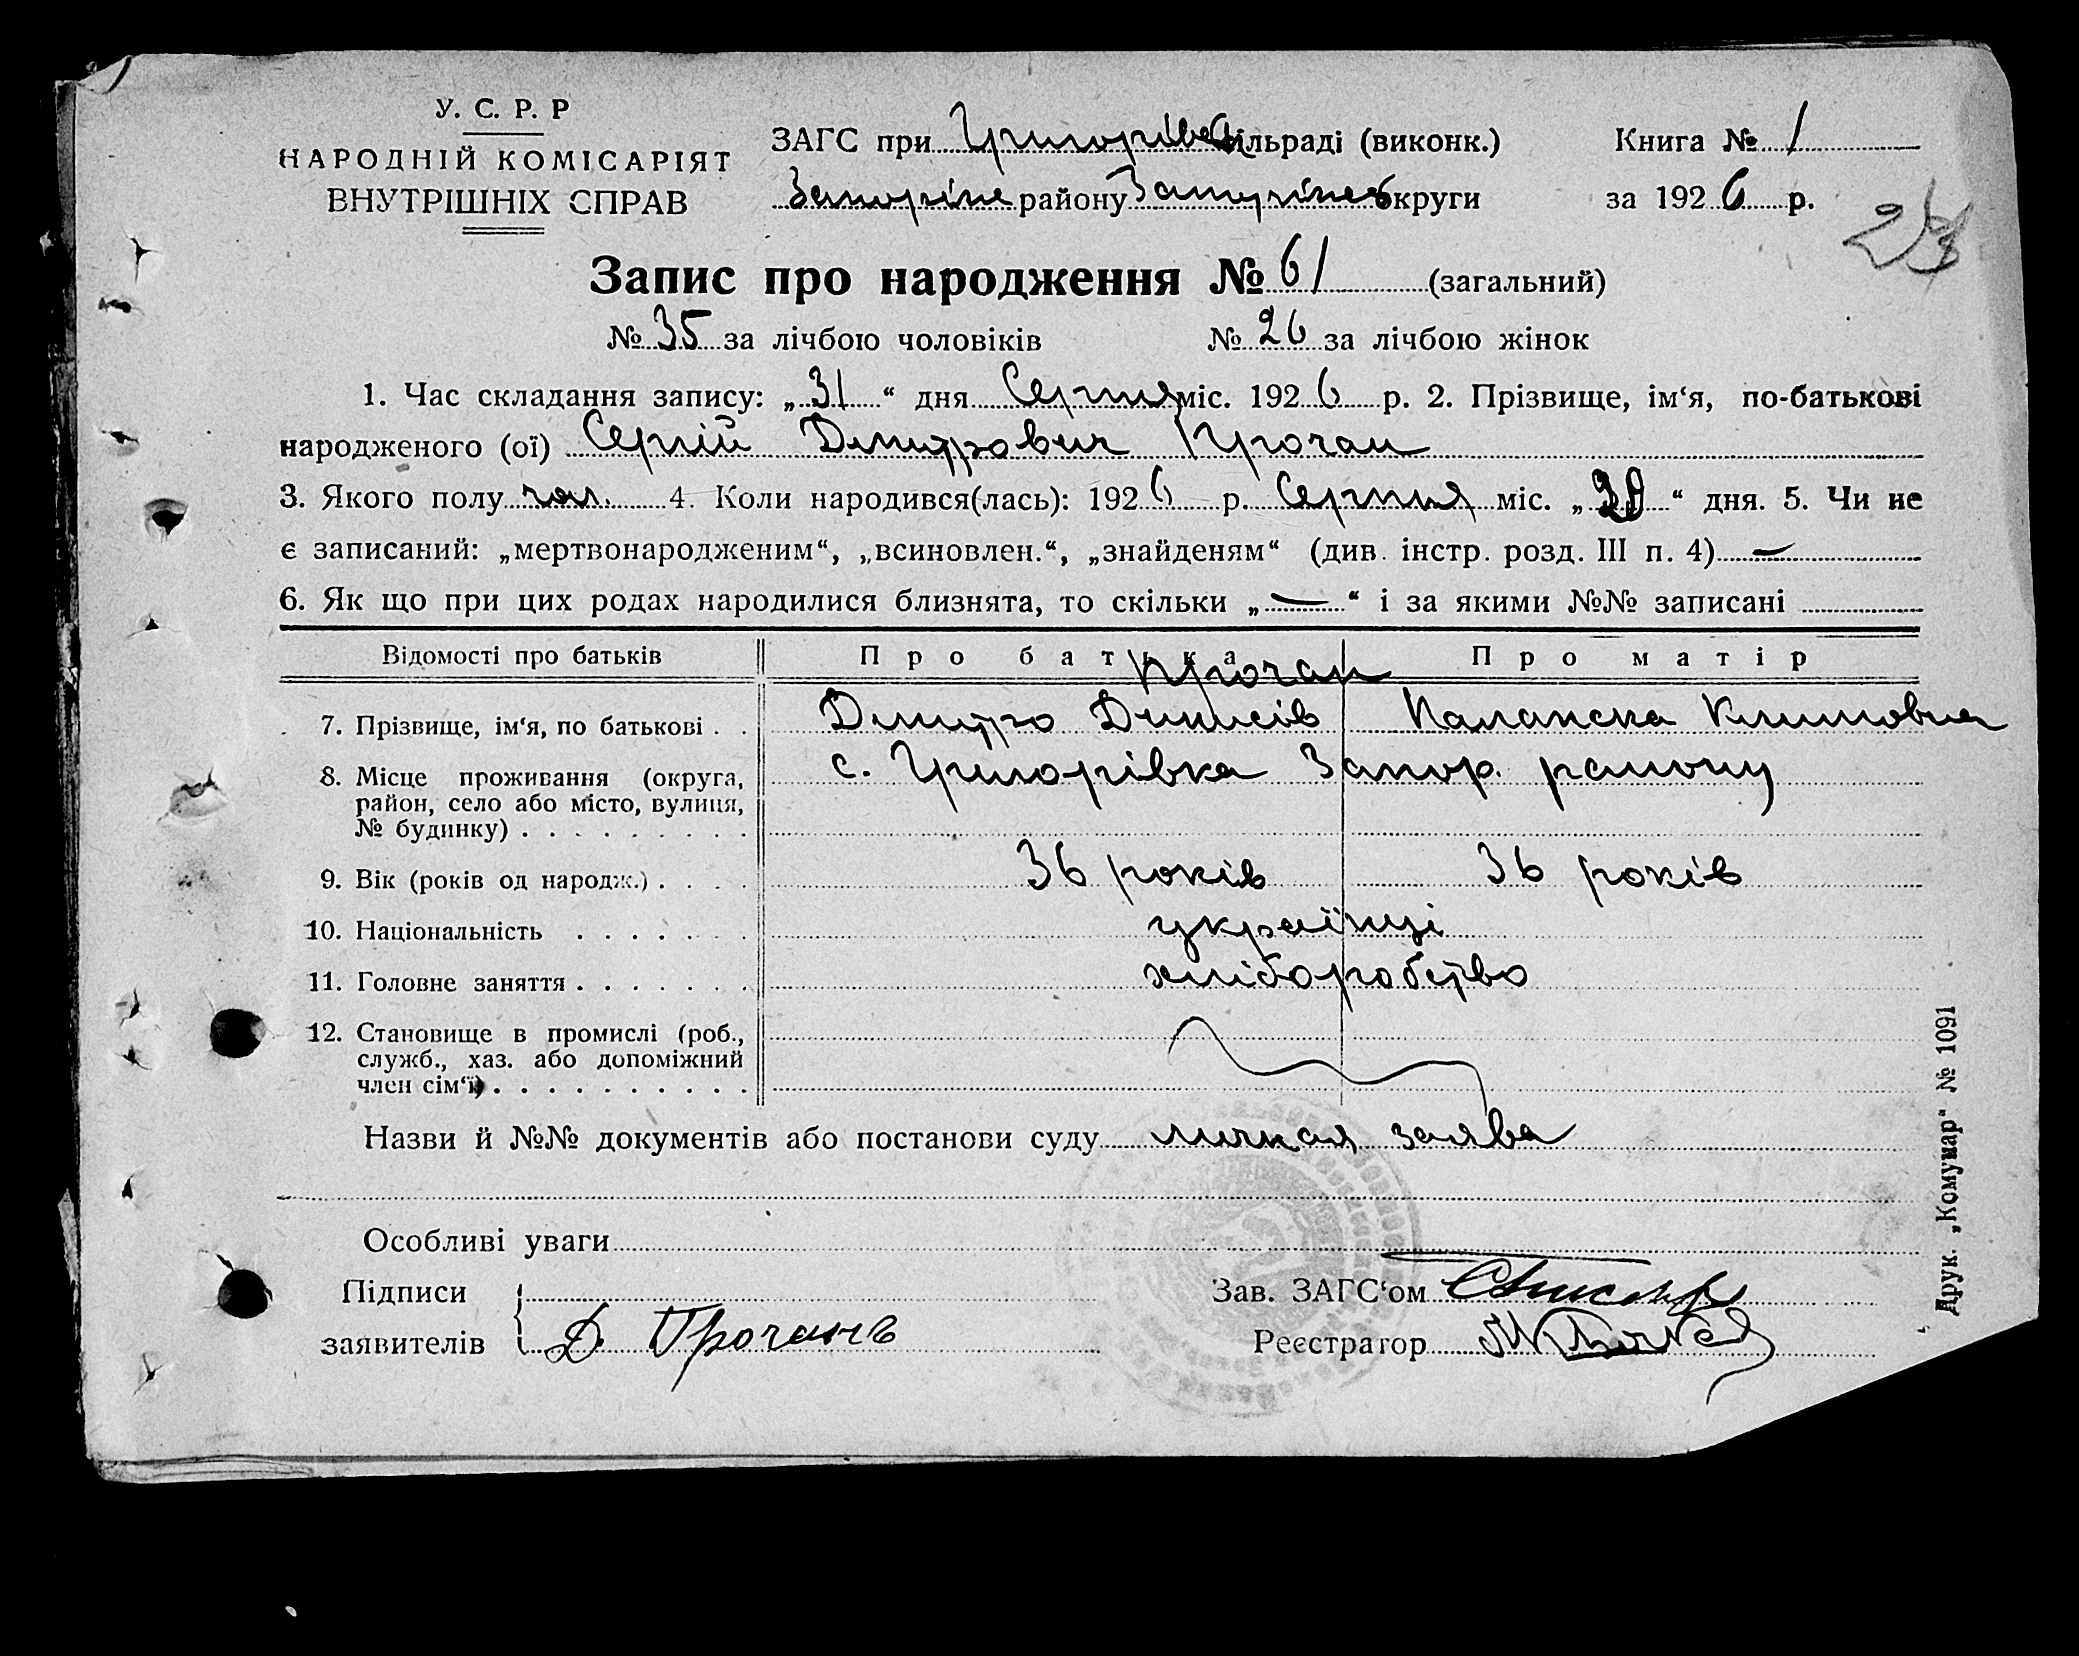 У. С. Р. Р
НАРОДНІЙ КОМІСАРІЯТ
ВНУТРІШНІХ СПРАВ
ЗАГС при Григорівс сільраді (виконк.)
Книга № 1
Запоріж району Запоріжс округи
за 1926 р.
Запис про народження № 61 (загальний)
№ 35 за лічбою чоловіків № 26 за лічбою жінок
1. Час складання запису: „31“ дня Серпня міс. 1926 р. 2. Прізвище, ім‘я, по-батькові
народженого (ої) Сергій Дмитрович Прочан
3. Якого полу чол. 4. Коли народився(лась): 1926 р. Серпня міс. „20“ дня. 5. Чи не
є записаний: „мертвонародженим“, „всиновлен.“, „знайденям“ (див. інстр. розд. III п. 4) —
6. Як що при цих родах народилися близнята, то скільки „—“ і за якими №№ записані
Відомості про батьків Про батька Про матір
Прочан
7. Прізвище, ім‘я, по батькові . . Дмитро Денисів Палажка Климовна
8. Місце проживання (округа, с. Григорівка Запор. району
район, село або місто, вулиця,
№ будинку) . . . . . . . . .
9. Вік (років од народж.) . . . . 36 років 36 років
10. Національність . . . . . . . українці
11. Головне заняття . . . . . . . хліборобство
12. Становище в промислі (роб.,
служб., хаз. або допоміжний
член сім‘ї) . . . . . . . . . .
Назви й №№ документів або постанови суду личная заява
Особливі уваги
Підписи
заявителів Д. Прочанъ
Зав. ЗАГС‘ом
Реєстратор
Друк. „Комунар“ № 1091